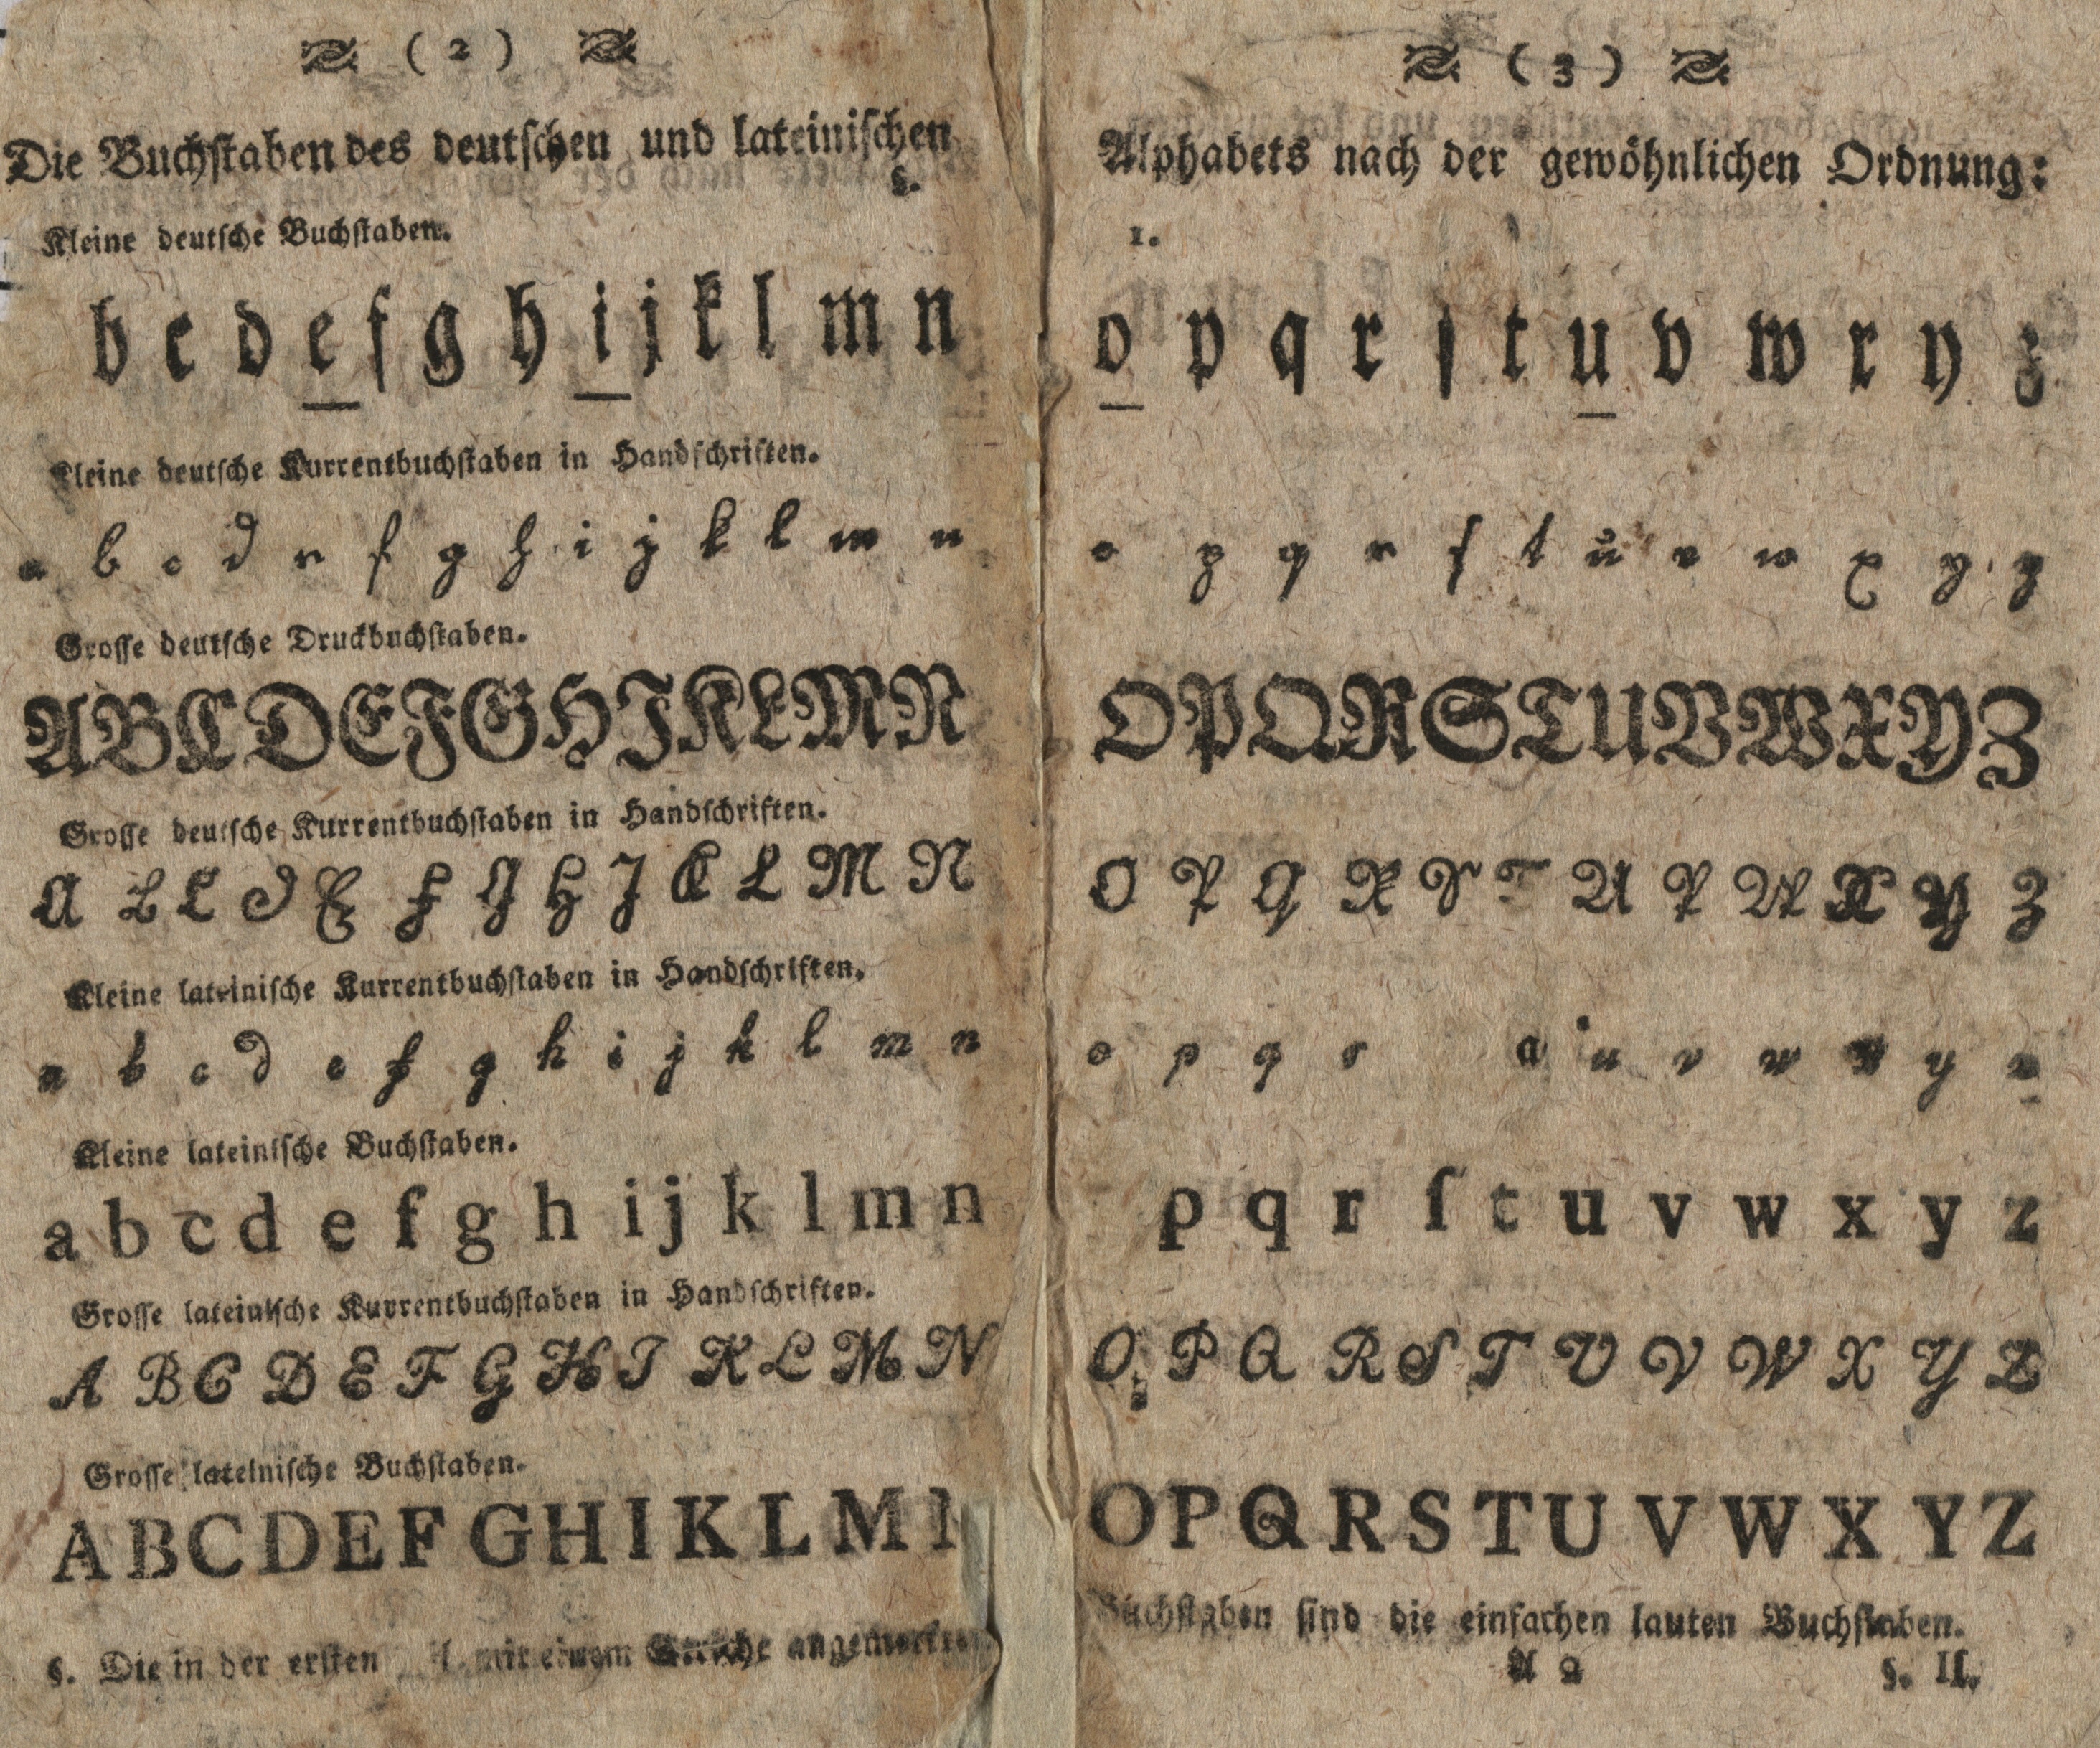 ( 2 )
Die Buchstaben des deutschen und lateinischen
§.
Kleine deutsche Buchstaben.
b c d e f g h i j k l m n
Kleine deutsche Kurrentbuchstaben in Handschriften.
a b c d e f g h i j k l m n
Grosse deutsche Druckbuchstaben.
A B C D E F G H I K L M N
Grosse deutsche Kurrentbuchstaben in Handschriften.
A B C D E F G H J K L M N
Kleine lateinische Kurrentbuchstaben in Handschriften.
a b c d e f g h i j k l m n
Kleine lateinische Buchstaben.
a b c d e f g h i j k l m n
Grosse lateinische Kurrentbuchstaben in Handschriften.
A B C D E F G H I K L M N
Grosse lateinische Buchstaben.
A B C D E F G H I K L M N
§. Die in der ersten mit einem Striche angemerkten
( 3 )
Alphabets nach der gewöhnlichen Ordnung:
1.
o p q r ſ t u v w x y z
o p q r ſ t u v w x y z
O P Q R S T U V W X Y Z
O P Q R S T U V W X Y Z
o p q r u v w x y z
p q r ſ t u v w x y z
O P Q R S T U V W X Y Z
O P Q R S T U V W X Y Z
Buchstaben sind die einfachen lauten Buchstaben.
A 2 §. II.